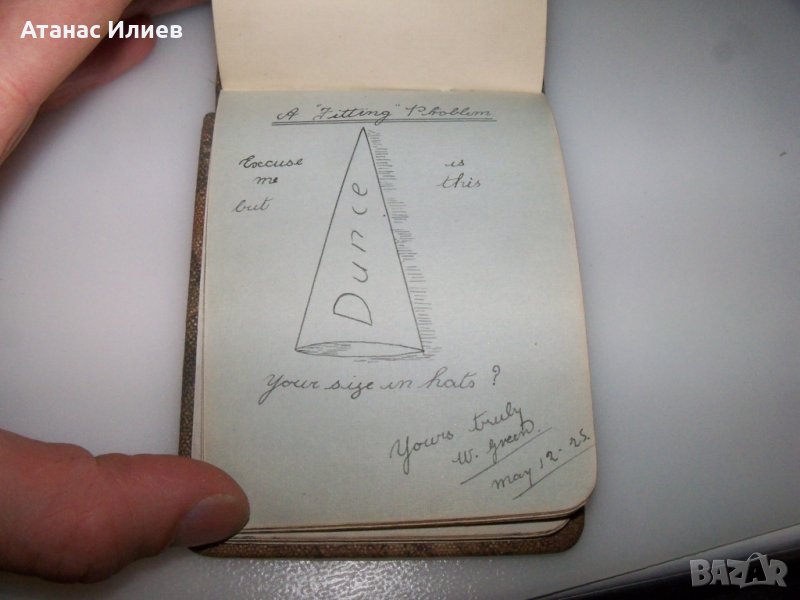 Атанас Илиев
A "Fitting" Problem
Excuse is
me this
but
Dunce
Your size in hats ?
Yours truly
W. Green.
May 12 - 25.
BAZAR